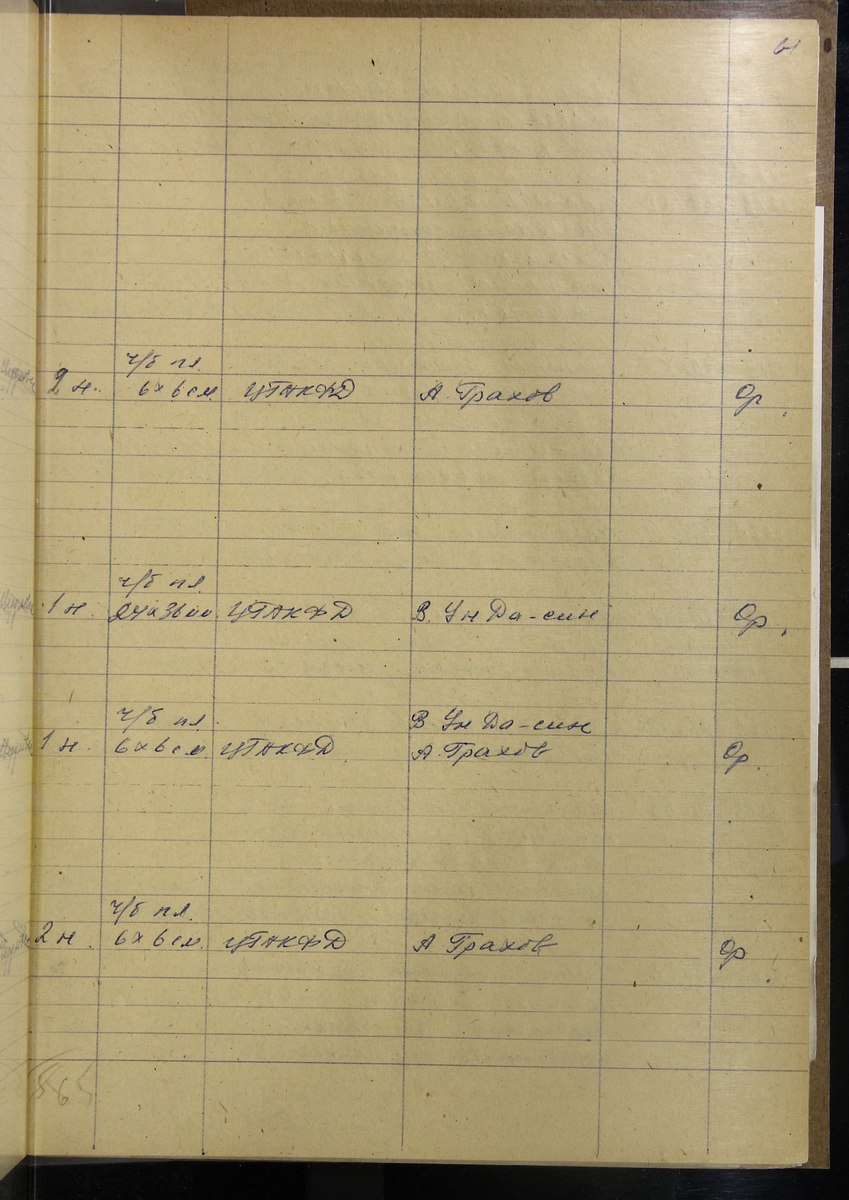 61
ч/б пл.
2 н. 6 х 6 см ЦГАКФД А. Грахов Ор.
ч/б пл.
1 н. 24 х 36 мм. ЦГАКФД В. Ун Да-син Ор.
ч/б пл. В. Ун Да-син
1 н. 6 х 6 см ЦГАКФД А. Грахов Ор.
ч/б пл.
2 н. 6 х 6 см. ЦГАКФД А Грахов Ор